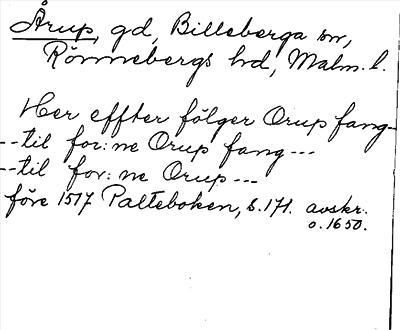 Årup, gd, Billeberga sn,
Rönnebergs hd, Malm. l.
Her effter fölger Orup fang-
--til for: ne Orup fang---
--til for: ne Orup---
före 1517 Palteboken, s. 171. avskr.
o. 1650.